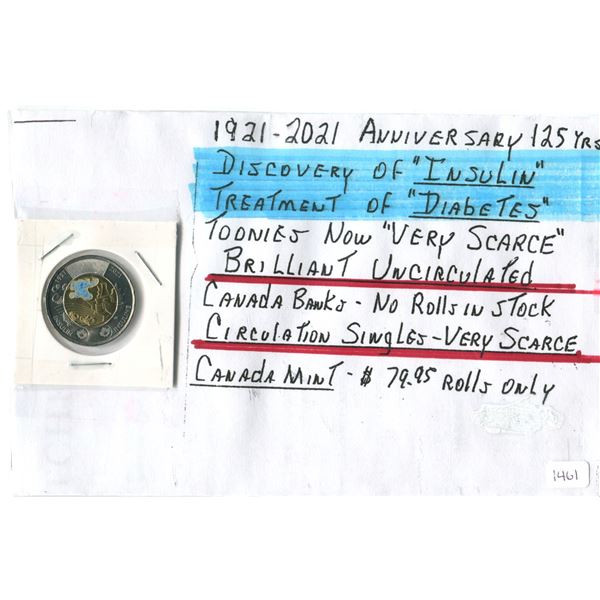 1921-2021 ANNIVERSARY 125 YRS
DISCOVERY OF "INSULIN"
TREATMENT OF "DIABETES"
TOONIES NOW "VERY SCARCE"
BRILLIANT UNCIRCULATED
CANADA BANKS - NO ROLLS IN STOCK
CIRCULATION SINGLES - VERY SCARCE
CANADA MINT - $ 79.95 ROLLS ONLY
1461